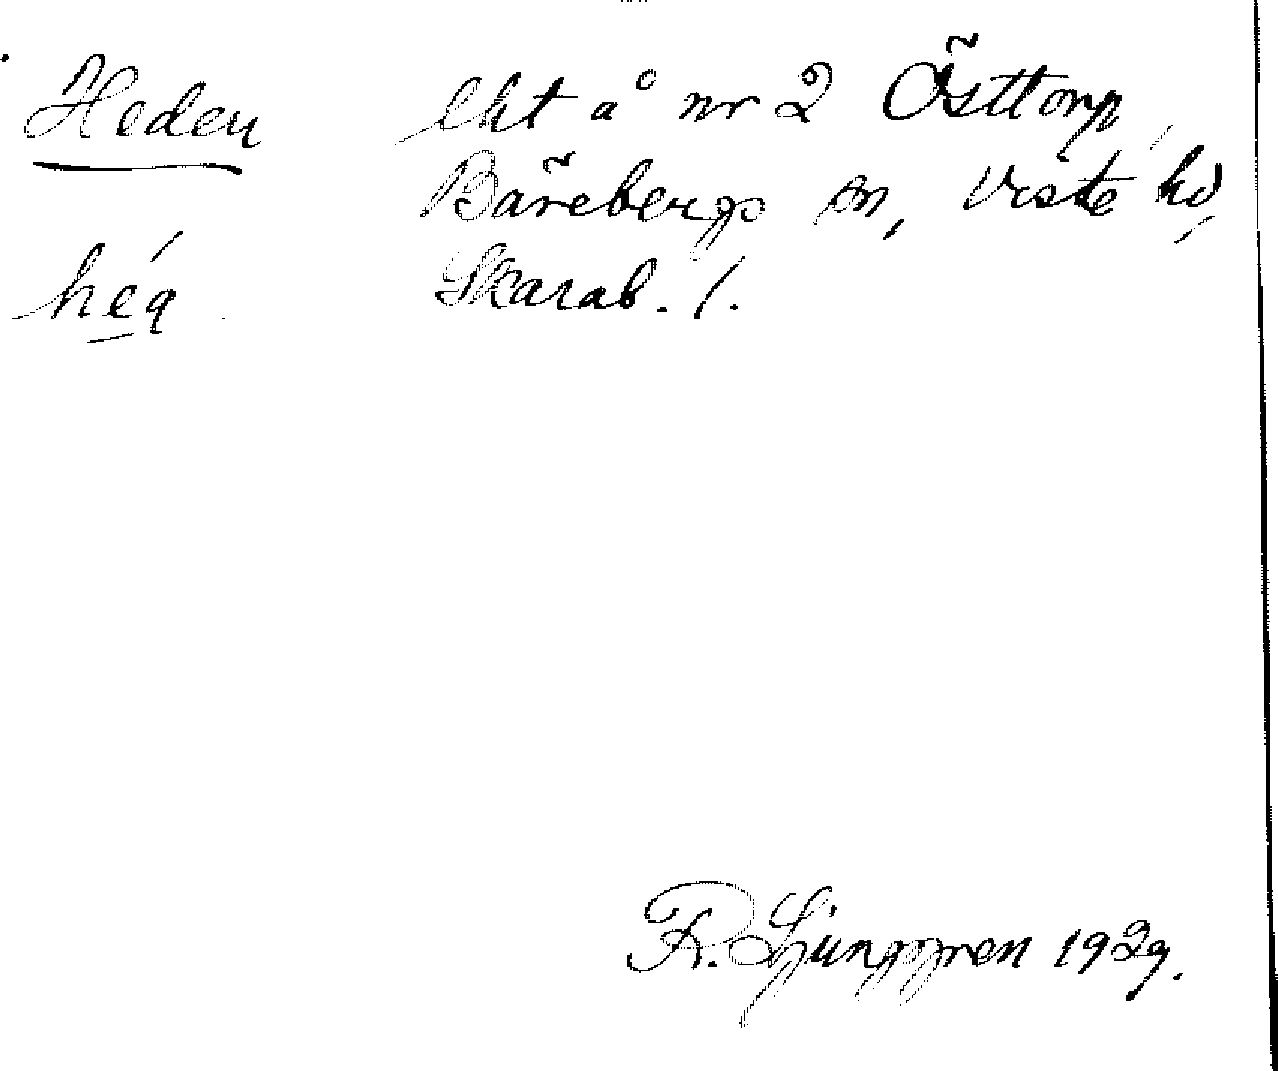 Heden lht å nr 2 Östtorp,
Bärebergs sn, Viste hd,
héa Skarab. l.
R. Ljunggren 1929.